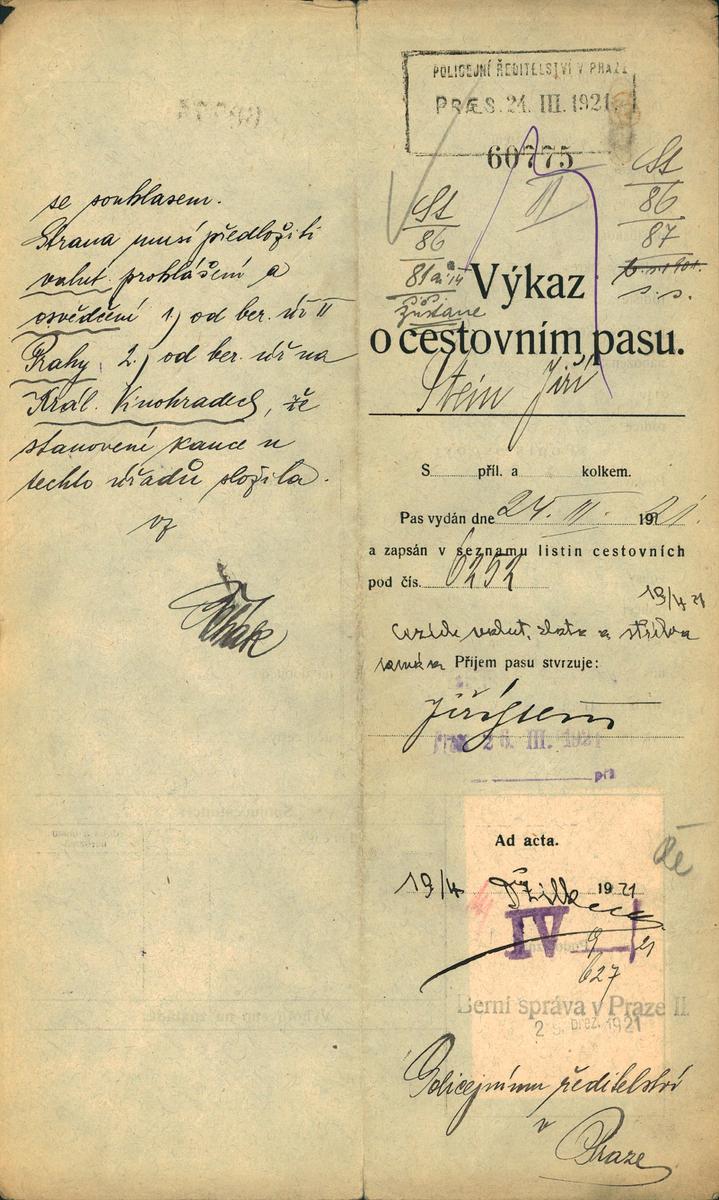 se souhlasem.
Strana musí předložiti
valut. prohlášení a
osvědčení 1.) od ber. úř II
Prahy, 2.) od ber. úř na
Král. Vinohradech, že
stanovené kauce u
techto úřadů složila.
POLICEJNÍ ŘEDITELSTVÍ V PRAZE
PRÆS. 24. III. 1921
60775
St
86
81
II
St
86
87
s. s.
zůstane
Výkaz
o cestovním pasu.
Stein Jiří
S příl. a kolkem.
Pas vydán dne 24. III. 1921.
a zapsán v seznamu listin cestovních
pod čís. 6252
19/4 21
valut, zlata a stříbra
Příjem pasu stvrzuje:
Jiří Stein
26. III. 1921
příl
Ad acta.
19/4 1921
IV
9
627
Berní správa v Praze II.
břez. 1921
Policejnímu ředitelství
v
Praze